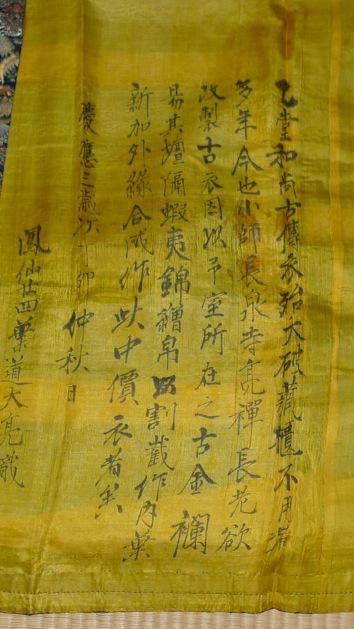 堂和尚古傳衣殆大破藏櫃不用者
多年今也小師長泉寺亮禪長老欲
改製古衣因以予室所在之古金襴
易其壇隔蝦夷錦繒帛以割截作内葉
新加外緣合成作此中價衣者矣
慶應三歳次丁卯仲秋日
鳳仙廿四葉道大亮識